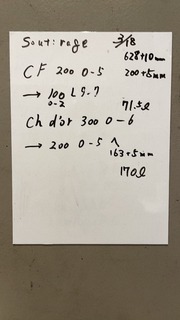 Soutirage 3/18
628+10mm
CF 200 0-5 200+5mm
→ 100 L5.7
0-2 71.5ℓ
Ch d'or 300 0-6
→ 200 0-5 ^
163+5mm
170ℓ